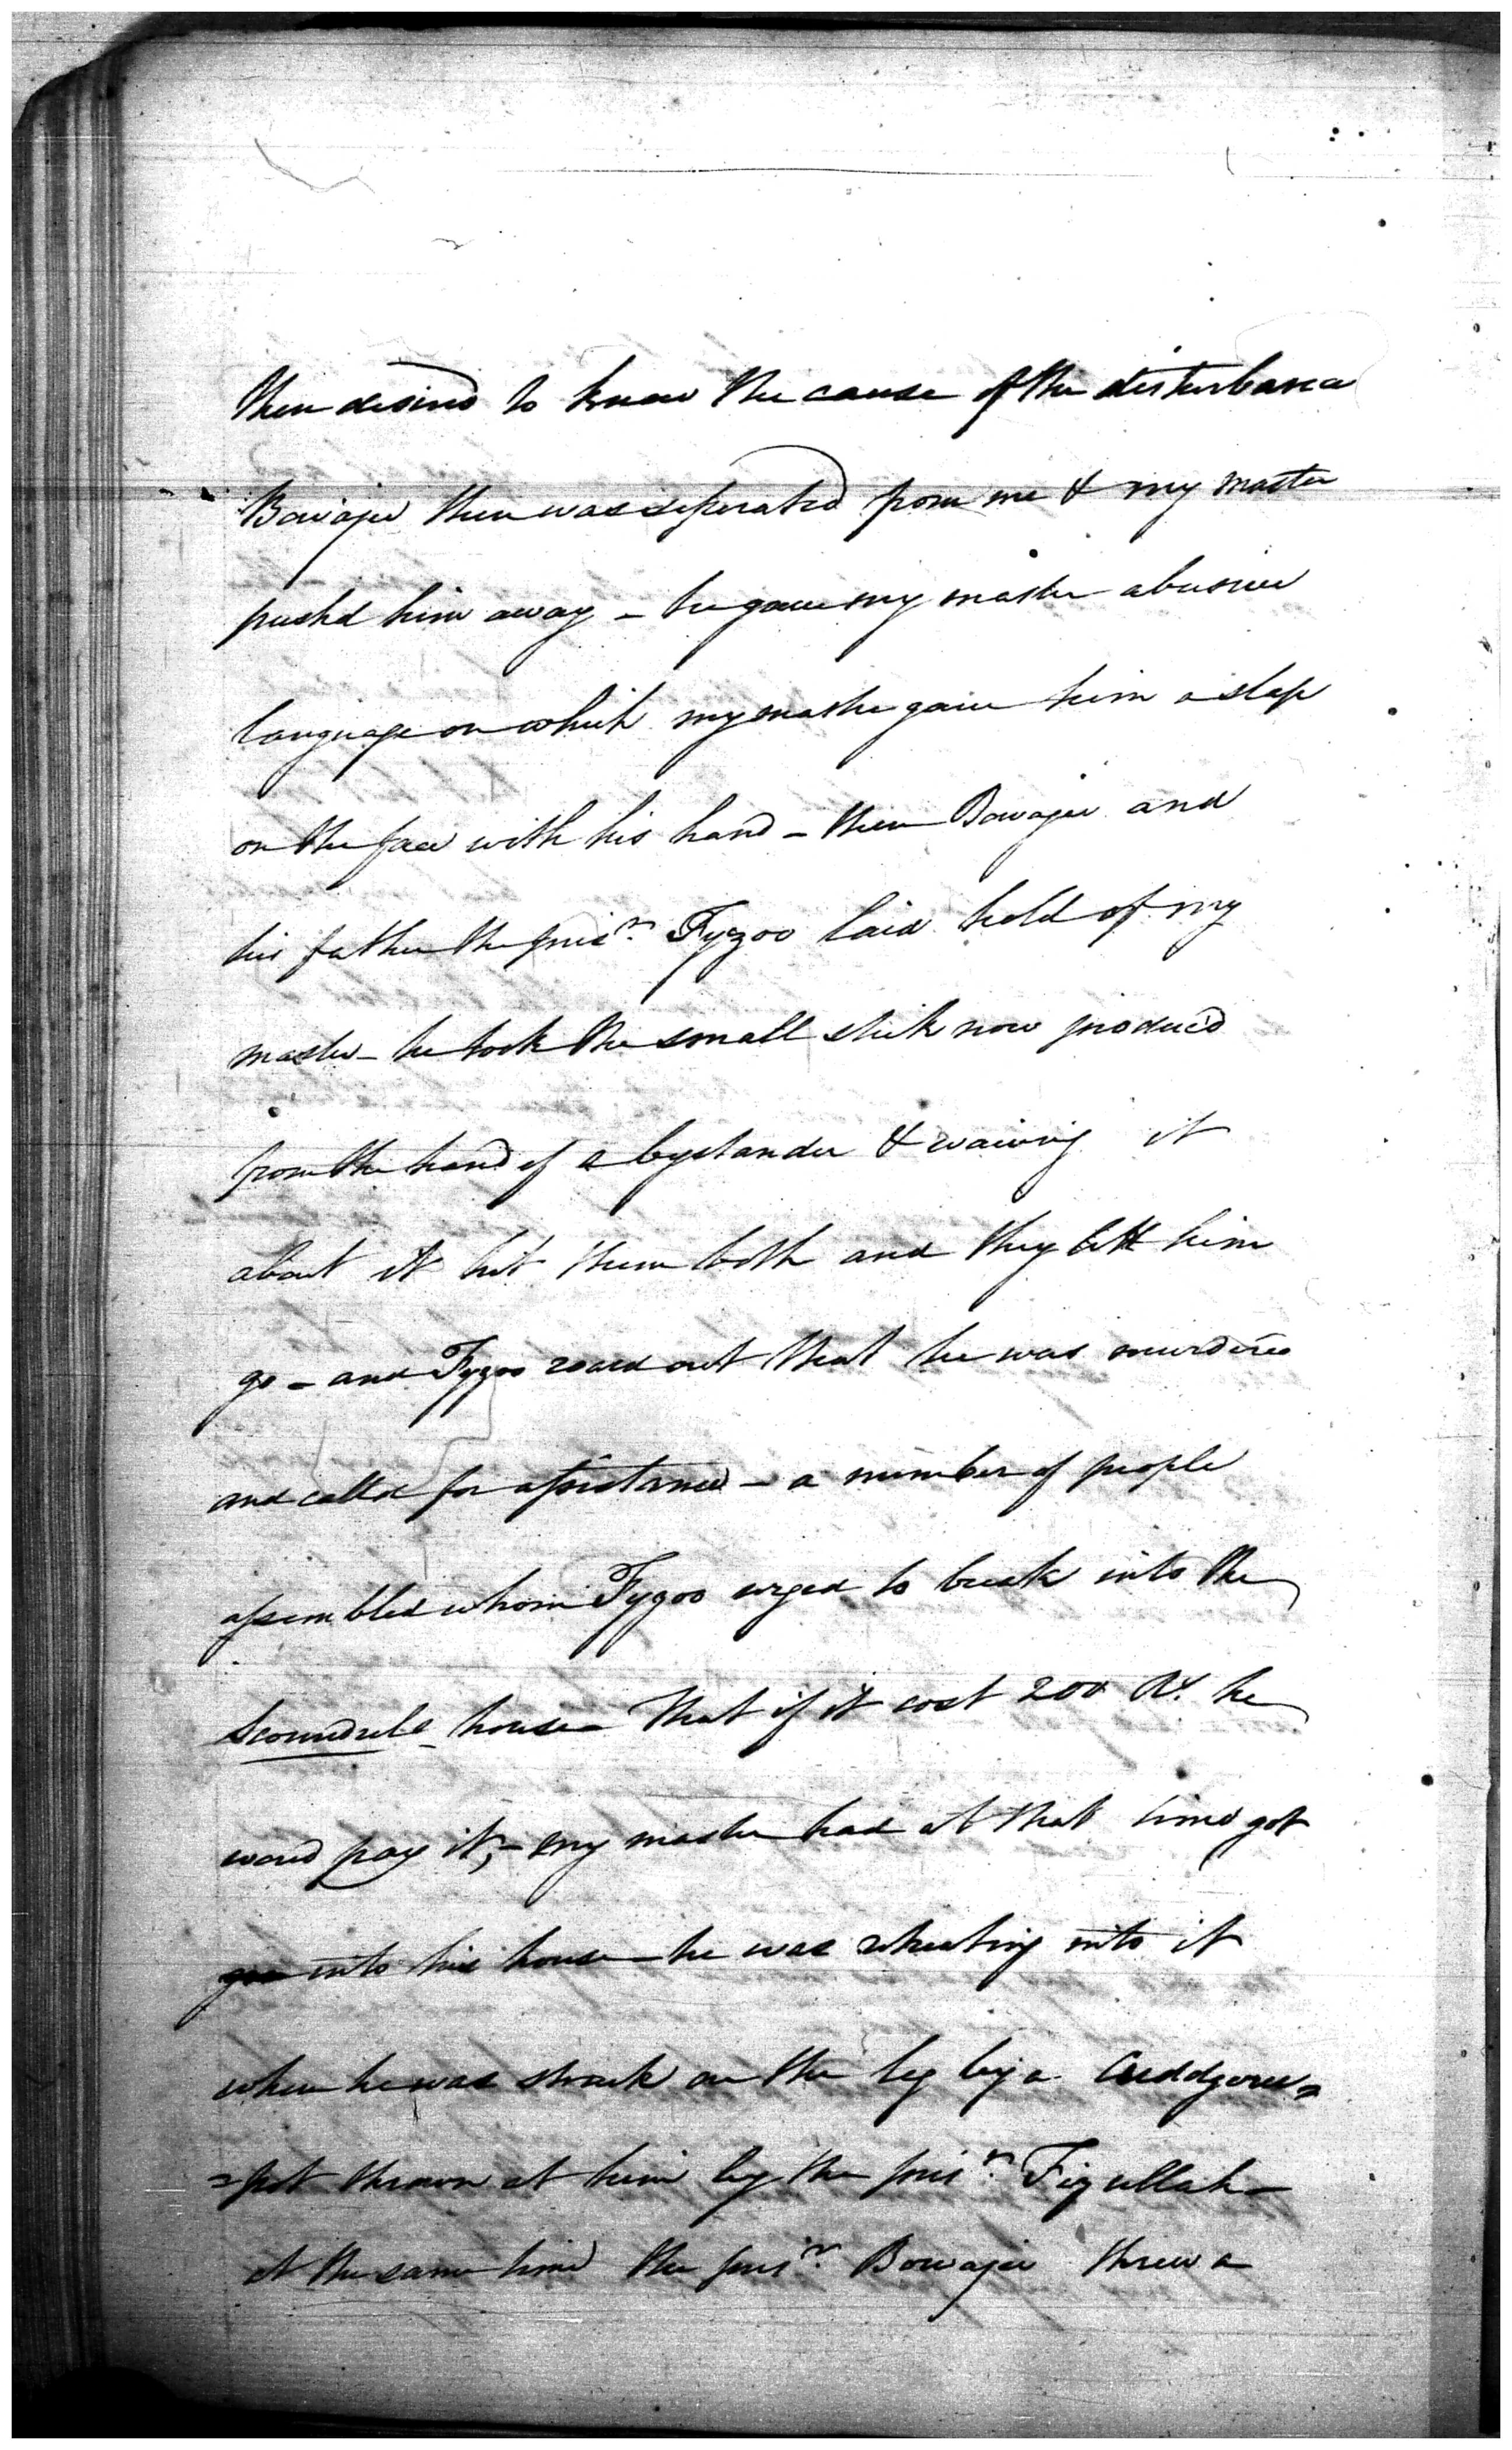 then desired to know the cause of the disturbance
Bowajee then was seperated from me & my master
pushd him away – he gave my master abusive
language on which my master gave him a slap
on the face with his hand – then Bowajee and
his father the prisr. Fyzoo laid hold of my
master – he took the small stick now produc'd
from the hand of a bystander & waiving it
about it hit them both and they let him
go – and Fyzoo roard out that he was murdered
and called for assistance – a number of people
assembled whom Fyzoo urged to break into the
scoundrels house – that if it cost 200 Rs. he
woud pay it, – my master had at that time got
into his house – he was retreating into it
when he was struck on the leg by a Cuddgeree=
=pot thrown at him by the prisr. Fizullah –
at the same time the prisr. Bowajee threw a